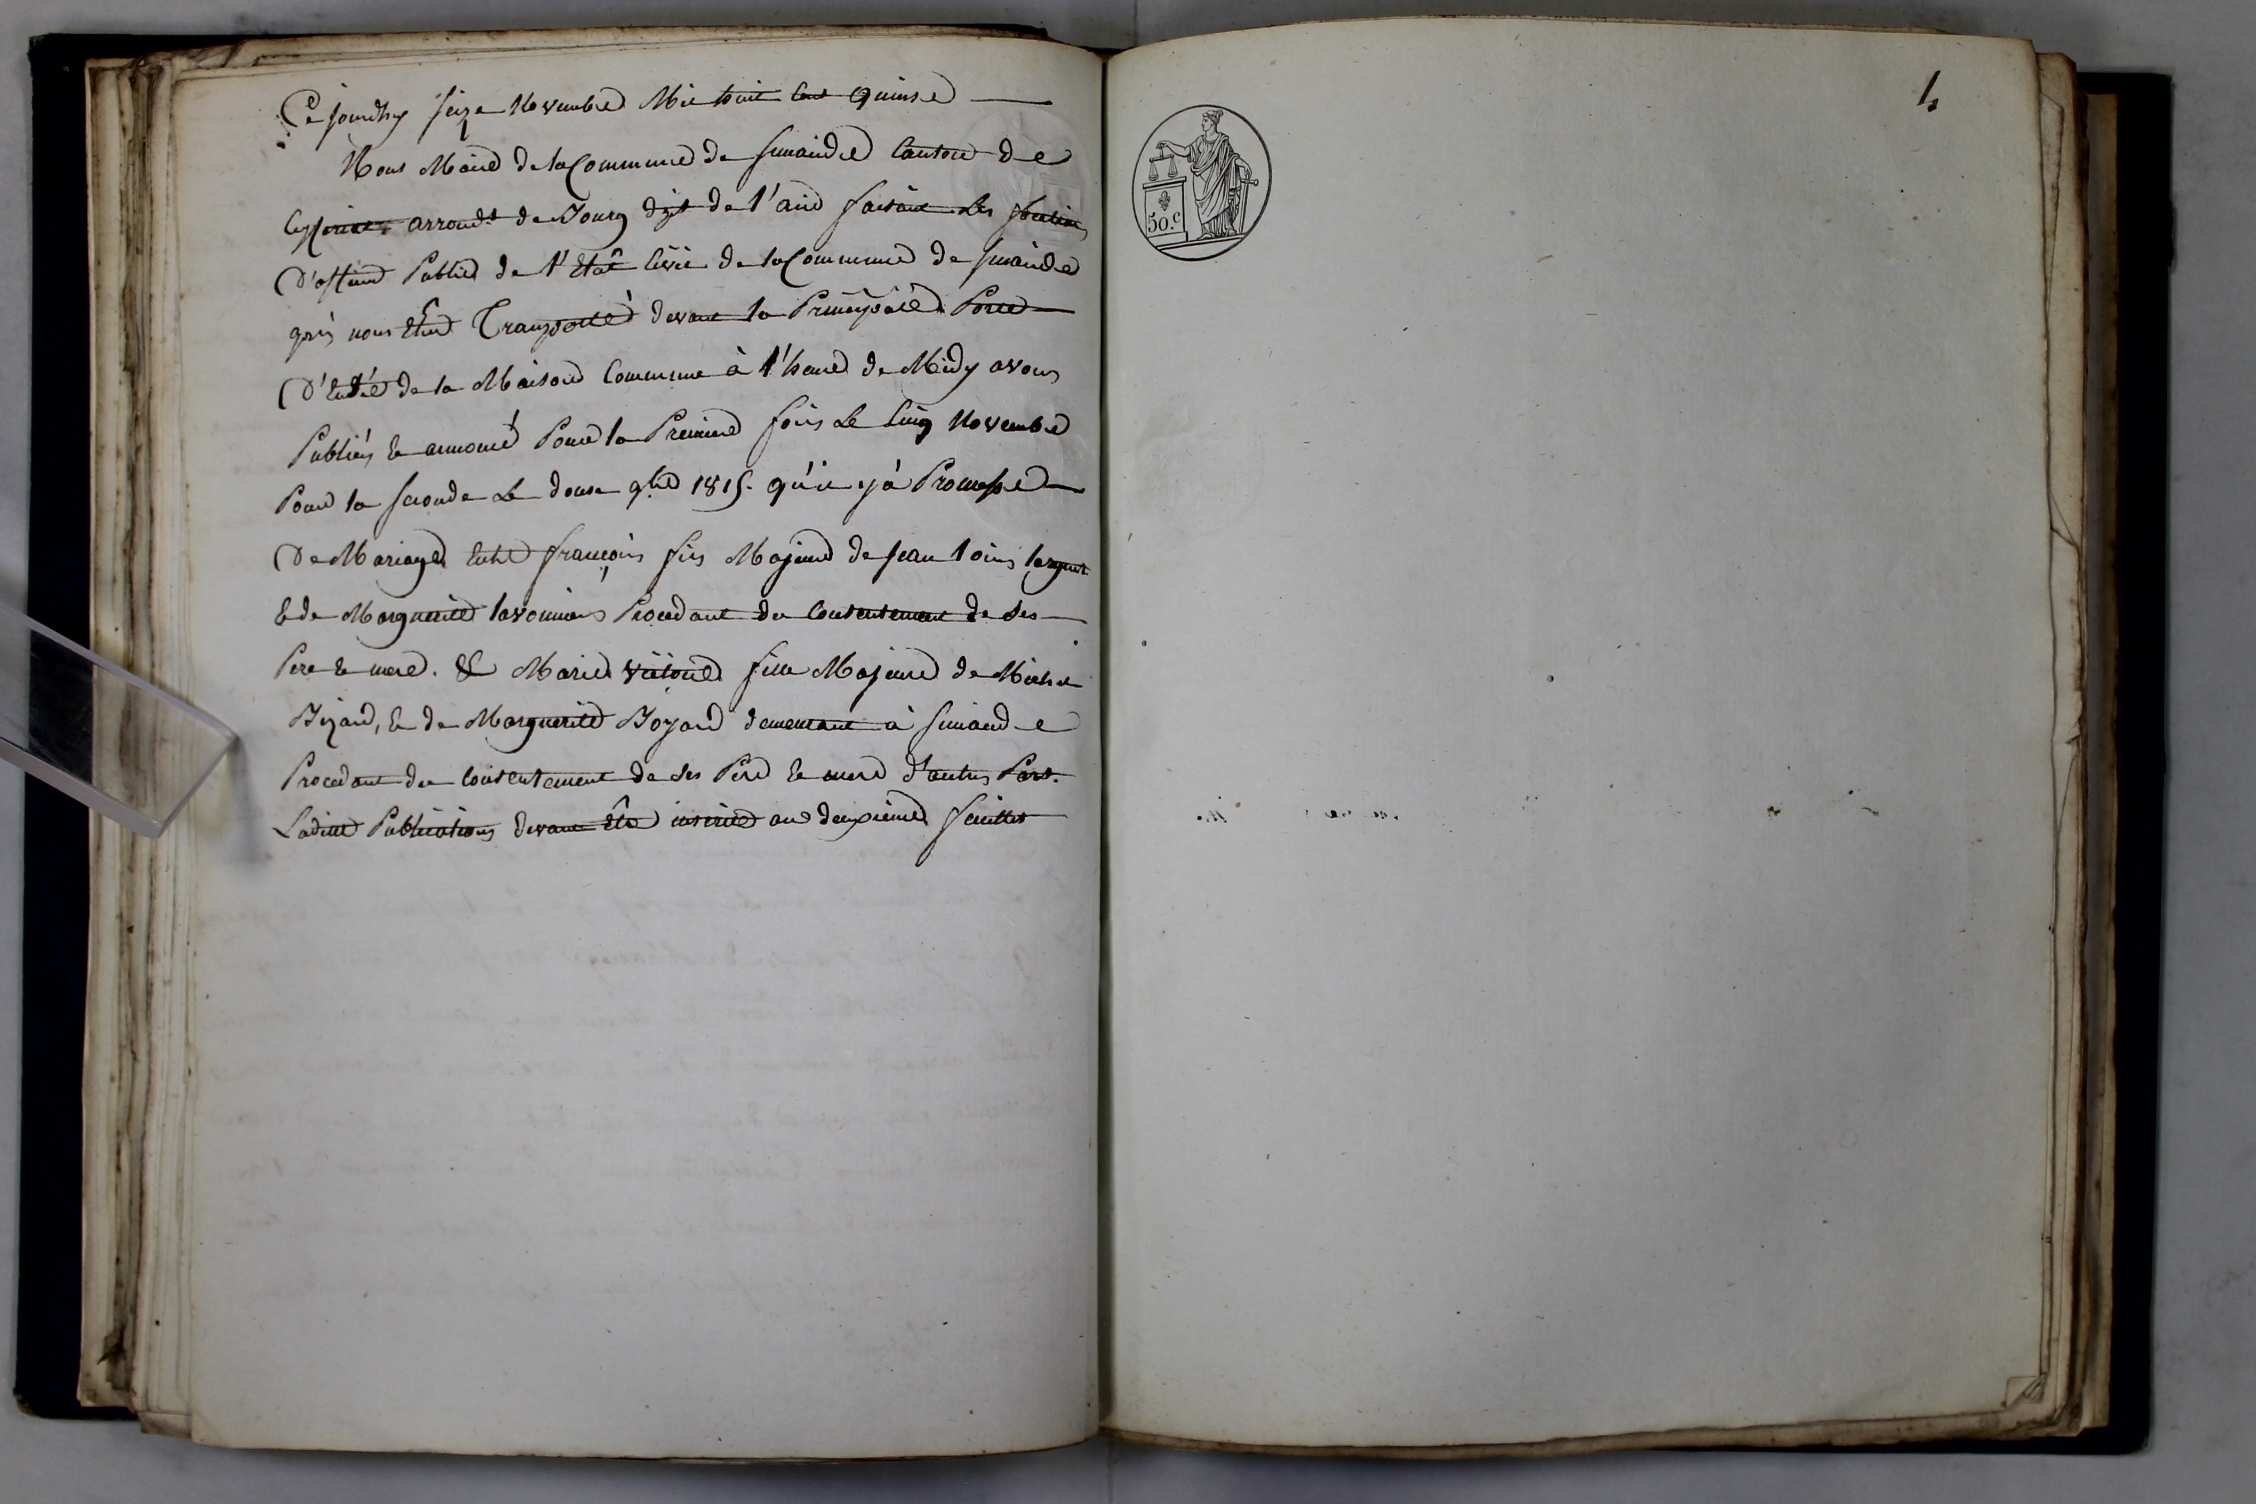 Ce jourdhy seize Novembre Mil huit Cent Quinse
Nous Maire de la Commune de Simandre Canton de
Ceyseriat arrondt de Bourg dept de l'ain faisant les fonctions
D'officier Public de l'Etat Civil de la Commune de Simandre
qpres nous Etre Transporté devant la Principale Porte
D'Entrée de la Maison Commune à l'heure de Midy avons
Publiés & annoncé Pour la Premiere fois le Cinq Novembre
Pour la seconde le douse 9bre 1815. qu'il y à Promesse
De Mariage Entre françois fils Majeur de Jean louis
& de Marguerite Procedant du Consentement de ses
Pere & mere. Et Marie Victoire fille Majeure de Michel
& de Marguerite Boyard demeurant à Simandre
Procedant du Consentement de ses Pere & mere d'autres Part.
Laditte Publications devant Etre inserée au deuxieme feuillet
50.c